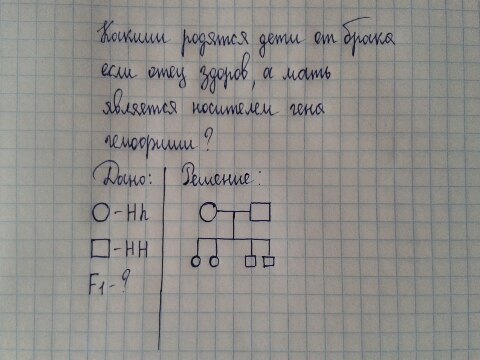 Какими родятся дети от брака
если отец здоров, а мать
является носителем гена
гемофилии?
Дано: Решение:
-Hh
-HH
F1-?